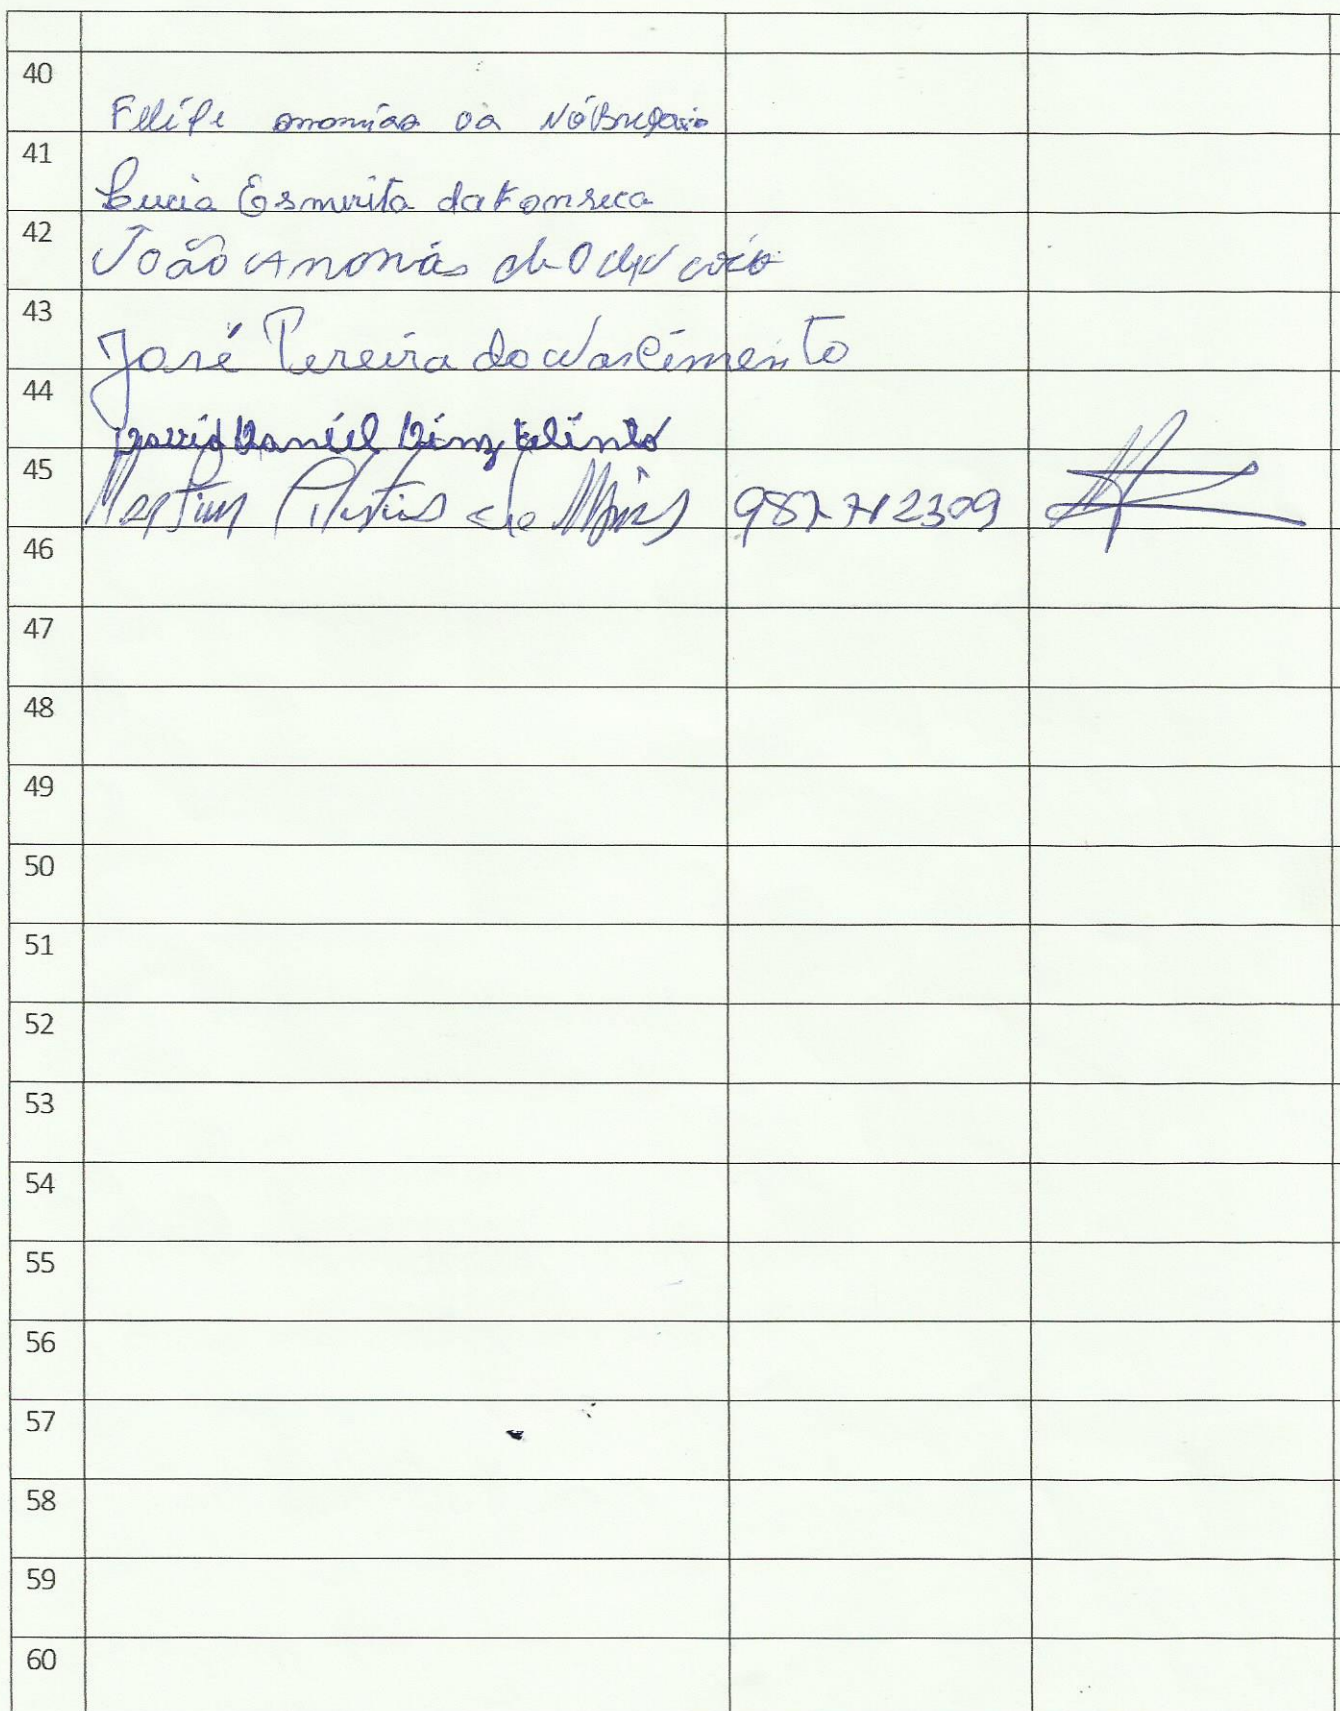 40
Felipe ananias da Nóbrega
41
Lucia Esmerita da Fonseca
42
João Ananias de
43
José Pereira do Nascimento
44
Daniel Diniz
45
de 987712309
46
47
48
49
50
51
52
53
54
55
56
57
58
59
60